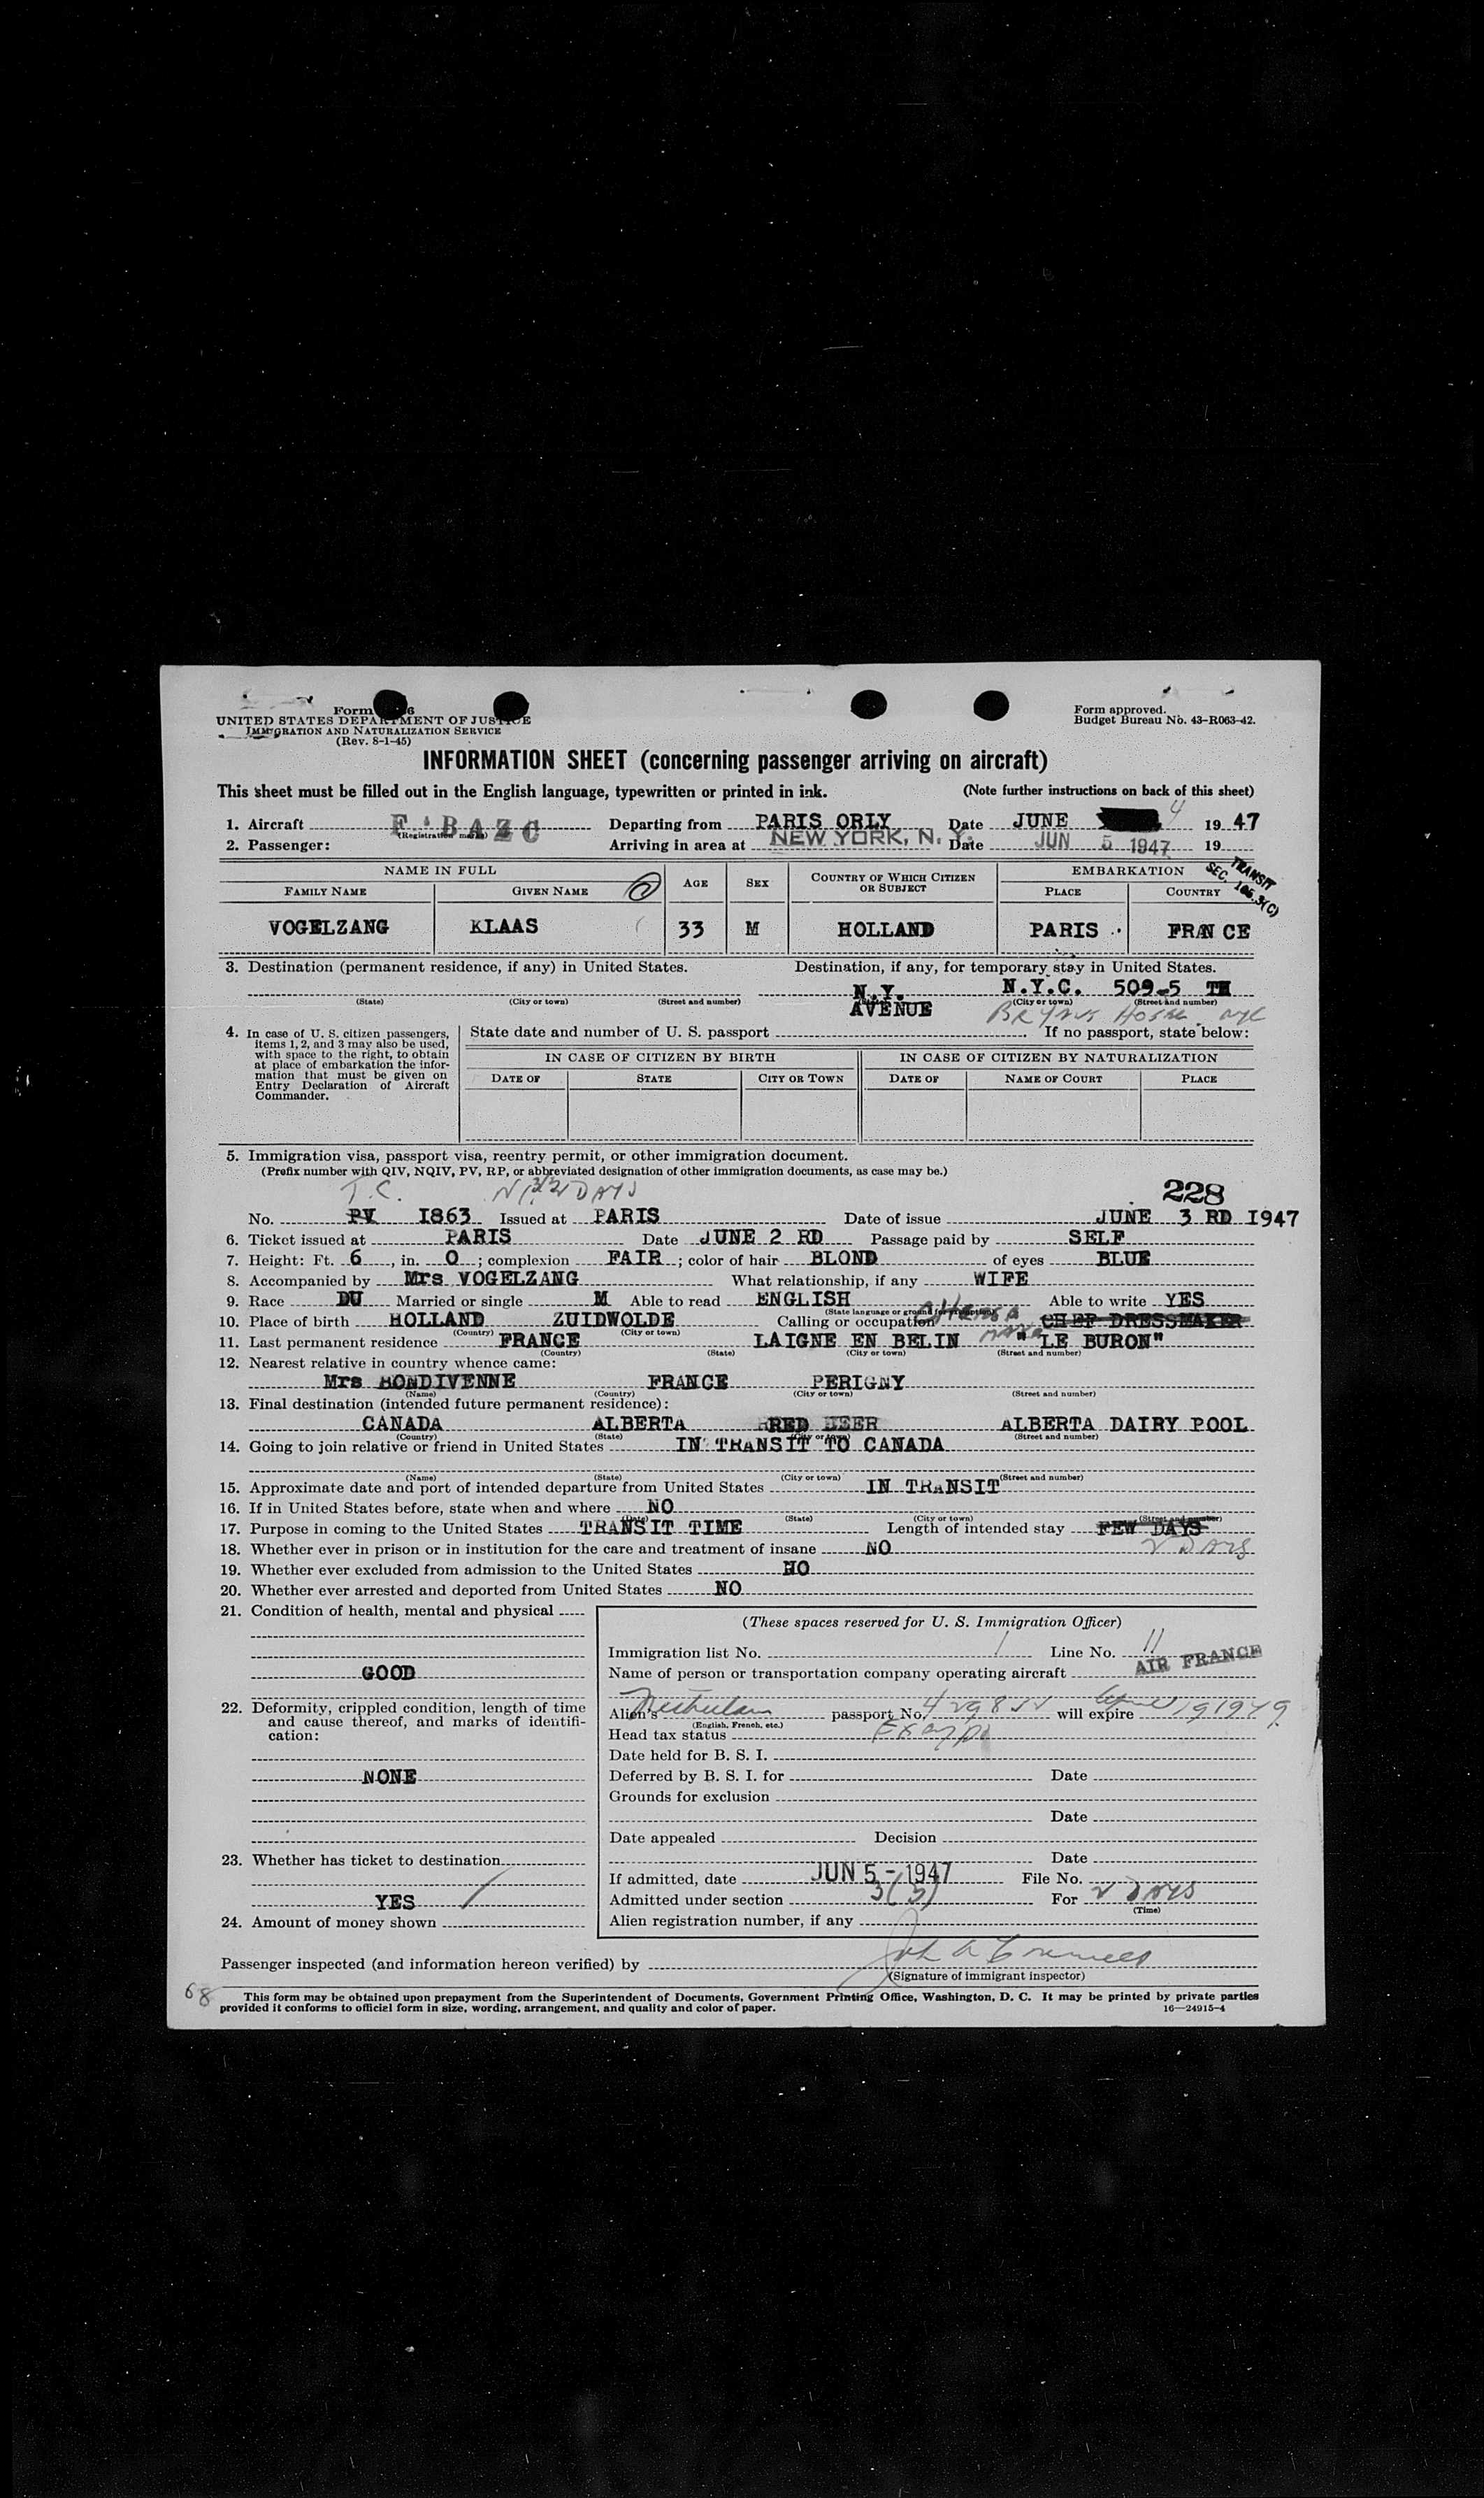 Form 6
UNITED STATES DEPARTMENT OF JUSTICE
IMMIGRATION AND NATURALIZATION SERVICE
(Rev. 8-1-45)
Form approved.
Budget Bureau No. 43-R063-42.
INFORMATION SHEET (concerning passenger arriving on aircraft)
This sheet must be filled out in the English language, typewritten or printed in ink. (Note further instructions on back of this sheet)
1. Aircraft F-BAZC Departing from PARIS ORLY Date JUNE 4 1947
(Registration marks)
2. Passenger: Arriving in area at NEW YORK, N. Y. Date JUN 5 1947 19
TRANSIT
SEC. 106.3(C)
NAME IN FULL AGE SEX COUNTRY OF WHICH CITIZEN OR SUBJECT EMBARKATION
FAMILY NAME GIVEN NAME PLACE COUNTRY
VOGELZANG KLAAS 33 M HOLLAND PARIS FRANCE
3. Destination (permanent residence, if any) in United States. Destination, if any, for temporary stay in United States.
N.Y. N.Y.C. 509-5 TH
(State) (City or town) (Street and number) (City or town) (Street and number)
AVENUE
NYC
4. In case of U. S. citizen passengers, items 1, 2, and 3 may also be used, with space to the right, to obtain at place of embarkation the information that must be given on Entry Declaration of Aircraft Commander.
State date and number of U. S. passport If no passport, state below:
IN CASE OF CITIZEN BY BIRTH IN CASE OF CITIZEN BY NATURALIZATION
DATE OF STATE CITY OR TOWN DATE OF NAME OF COURT PLACE
5. Immigration visa, passport visa, reentry permit, or other immigration document.
(Prefix number with QIV, NQIV, PV, RP, or abbreviated designation of other immigration documents, as case may be.)
T.C. DAYS 228
No. PV I863 Issued at PARIS Date of issue JUNE 3 RD I947
6. Ticket issued at PARIS Date JUNE 2 RD Passage paid by SELF
7. Height: Ft. 6, in. 0; complexion FAIR; color of hair BLOND of eyes BLUE
8. Accompanied by Mrs VOGELZANG What relationship, if any WIFE
9. Race DU Married or single M Able to read ENGLISH Able to write YES
(State language or ground for exemption)
10. Place of birth HOLLAND ZUIDWOLDE Calling or occupation CHEF DRESSMAKER
(Country) (City or town)
11. Last permanent residence FRANCE LAIGNE EN BELIN "LE BURON"
(Country) (State) (City or town) (Street and number)
12. Nearest relative in country whence came:
Mrs BONDIVENNE FRANCE PERIGNY
(Name) (Country) (City or town) (Street and number)
13. Final destination (intended future permanent residence):
CANADA ALBERTA RED DEER ALBERTA DAIRY POOL
(Country) (State) (City or town) (Street and number)
14. Going to join relative or friend in United States IN TRANSIT TO CANADA
(Name) (State) (City or town) (Street and number)
15. Approximate date and port of intended departure from United States IN TRANSIT
16. If in United States before, state when and where NO
(Date) (State) (City or town) (Street and number)
17. Purpose in coming to the United States TRANSIT TIME Length of intended stay FEW DAYS
2 DAYS
18. Whether ever in prison or in institution for the care and treatment of insane NO
19. Whether ever excluded from admission to the United States NO
20. Whether ever arrested and deported from United States NO
21. Condition of health, mental and physical
GOOD
22. Deformity, crippled condition, length of time and cause thereof, and marks of identification:
NONE
23. Whether has ticket to destination
YES
24. Amount of money shown
(These spaces reserved for U. S. Immigration Officer)
Immigration list No. 1 Line No. 11
Name of person or transportation company operating aircraft AIR FRANCE
Alien's passport No. will expire
(English, French, etc.)
Head tax status Exempt
Date held for B. S. I.
Deferred by B. S. I. for Date
Grounds for exclusion
Date
Date appealed Decision
Date
If admitted, date JUN 5 - 1947 File No.
Admitted under section 3(3) For 2 DAYS
(Time)
Alien registration number, if any
Passenger inspected (and information hereon verified) by
(Signature of immigrant inspector)
68
This form may be obtained upon prepayment from the Superintendent of Documents, Government Printing Office, Washington, D. C. It may be printed by private parties
provided it conforms to official form in size, wording, arrangement, and quality and color of paper. 16—24915-4